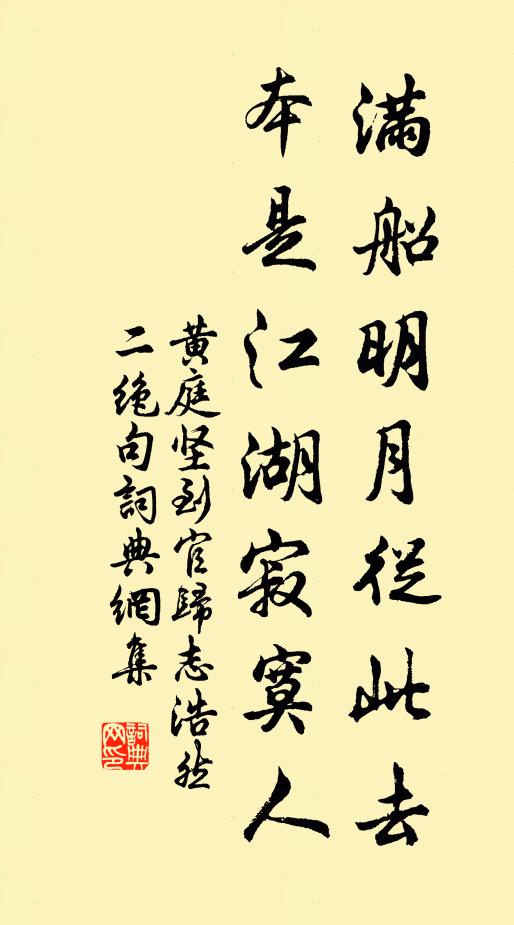 滿船明月從此去
本是江湖寂寞人
黄庭坚到官歸志浩然
二絶句詞典網集
詞典
网印